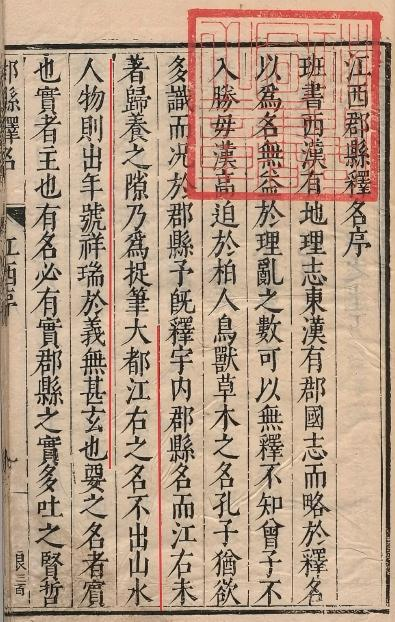 江西郡縣釋名序
班書西漢有地理志東漢有郡國志而略於釋名
以爲名無益於理亂之數可以無釋不知曾子不
入勝母漢高迫於柏人鳥獸草木之名孔子猶欲
多識而况於郡縣予既釋宇内郡縣名而江右未
著歸養之隙乃爲捉筆大都江右之名不出山水
人物則出年號祥瑞於義無甚玄也要之名者賓
也實者主也有名必有實郡縣之實多吐之賢哲
郡縣釋名
江西序